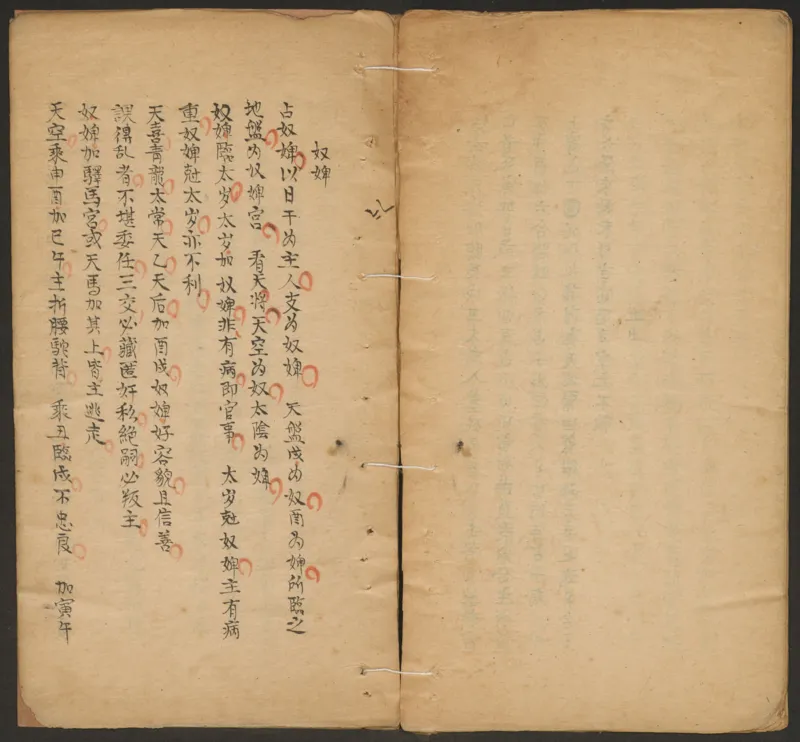 奴婢
占奴婢以日干为主人支为奴婢 天盤戌为奴酉为婢所臨之
地盤为奴婢宮 看天將天空为奴太陰为婢
奴婢臨太岁太岁加奴婢非有病即官事 太岁尅奴婢主有病
重奴婢尅太岁亦不利
天喜青龍太常天乙天后加酉戌奴婢好容貌且信善
誤得乱者不堪委任三交必藏匿奸私絶嗣必叛主
奴婢加驛馬宮或天馬加其上皆主逃走
天空乘申酉加巳午主折腰駝背 乘丑臨戌不忠良 加寅午